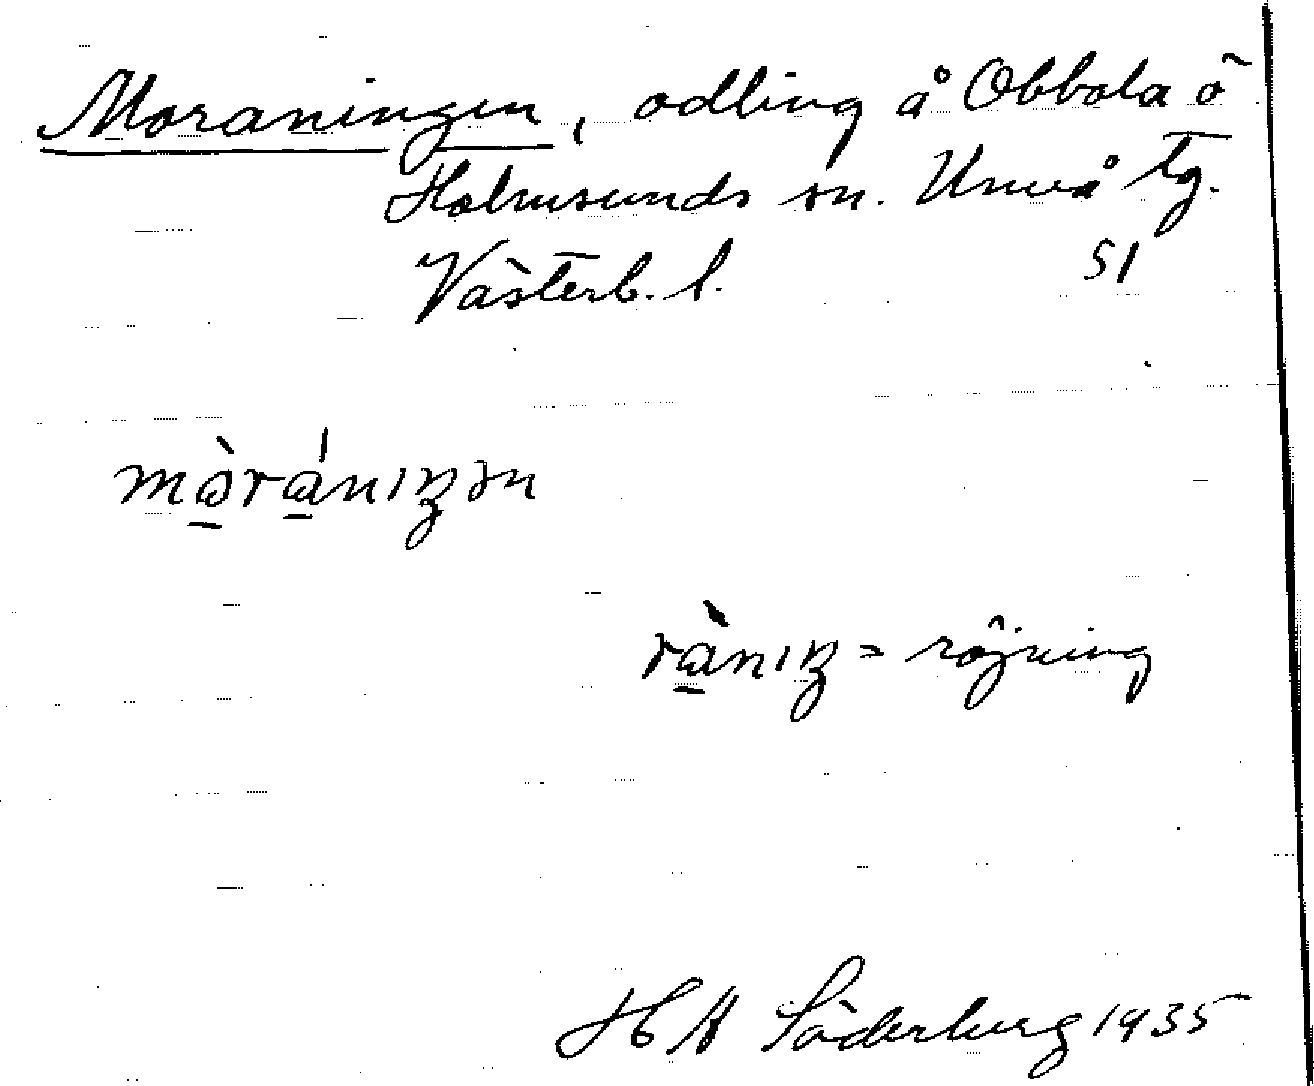 Moraningen, odling å Obbola ö
Holmsunds sn. Umeå tg.
Västerb. l. 51
mòràníŋən
ràniŋ = röjning
H H Söderberg 1935